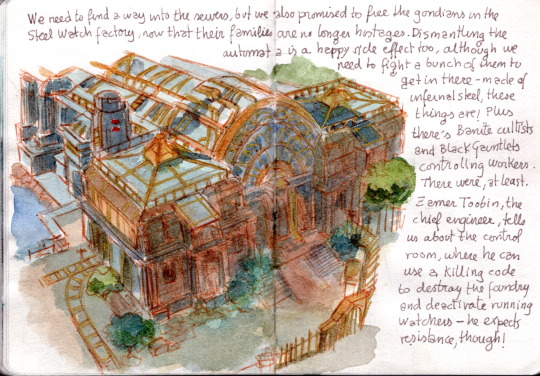 We need to find a way into the sewers, but we also promised to free the gondians in the
Steel Watch factory, now that their families are no longer hostages. Dismantling the
automata is a happy side effect too, although we
need to fight a bunch of them to
get in there - made of
infernal steel, these
things are! Plus
there's Banite cultists
and Black Gauntlets
controlling workers.
There were, at least.
Zanner Toobin, the
chief engineer, tells
us about the control
room, where he can
use a killing code
to destroy the foundry
and deactivate running
watchers - he expects
resistance, though!